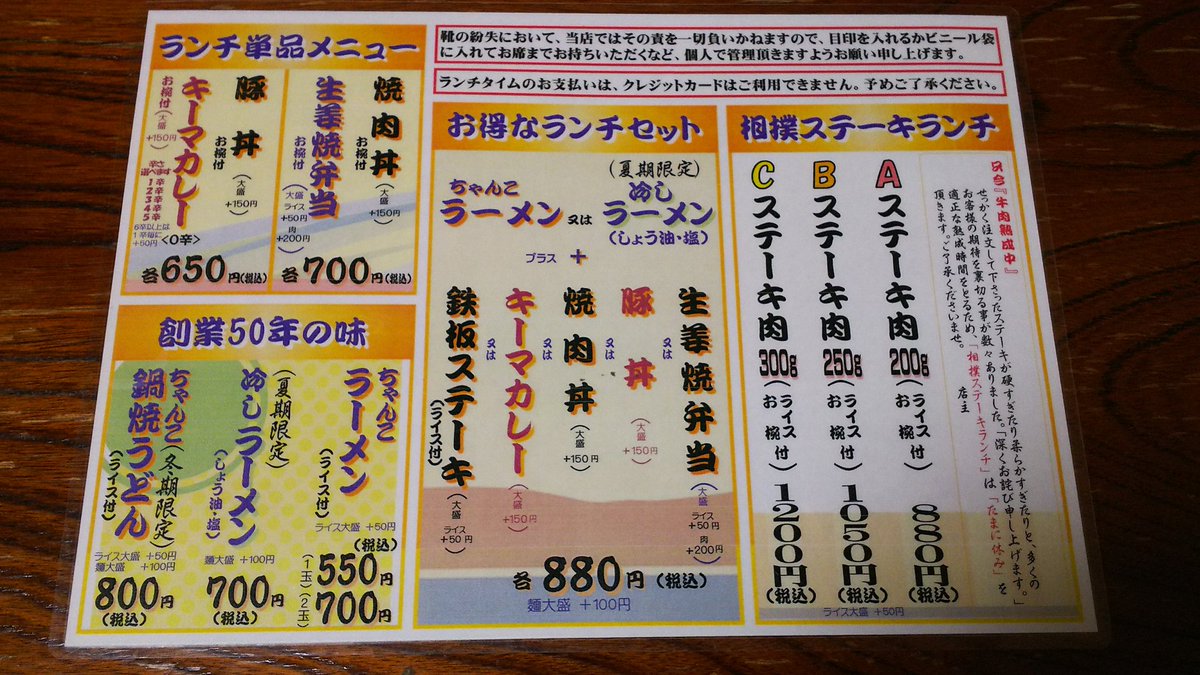 ランチ単品メニュー
焼肉丼
お椀付
(大盛+150円)
生姜焼弁当
お椀付
(大盛 ライス+50円 肉+200円)
各700円(税込)
豚丼
お椀付
(大盛+150円)
キーマカレー
お椀付(大盛+150円)
辛さ選べます
1辛
2辛
3辛
4辛
5辛
6辛以上は
1辛毎に
+50円
<0辛>
各650円(税込)
創業50年の味
ちゃんこ
ラーメン
(ライス付)
ライス大盛 +50円
(税込)
(1玉)550円
(2玉)700円
(夏期限定)
冷しラーメン
(しょう油・塩)
麺大盛 +100円
700円
(税込)
ちゃんこ(冬期限定)
鍋焼うどん
(ライス付)
ライス大盛 +50円
麺大盛 +100円
800円
(税込)
靴の紛失において、当店ではその責を一切負いかねますので、目印を入れるかビニール袋
に入れてお席までお持ちいただくなど、個人で管理頂きますようお願い申し上げます。
ランチタイムのお支払いは、クレジットカードはご利用できません。予めご了承ください。
お得なランチセット
ちゃんこ
ラーメン
又は
(夏期限定)
冷し
ラーメン
(しょう油・塩)
プラス +
生姜焼弁当
(大盛 ライス+50円 肉+200円)
又は
豚丼
(大盛+150円)
又は
焼肉丼
(大盛+150円)
又は
キーマカレー
(大盛+150円)
又は
鉄板ステーキ
(ライス付)
(大盛 ライス+50円)
各880円(税込)
麺大盛 +100円
相撲ステーキランチ
只今『牛肉熟成中』
せっかく注文して下さったステーキが硬すぎたり柔らかすぎたりと、多くの
お客様の期待を裏切る事が数々ありました。「深くお詫び申し上げます。」
適正な熟成時間をとるため、「相撲ステーキランチ」は「たまに休み」を
頂きます。ご了承くださいませ。
店主
A ステーキ肉200g(ライス付 お椀付)880円(税込)
B ステーキ肉250g(ライス付 お椀付)1050円(税込)
C ステーキ肉300g(ライス付 お椀付)1200円(税込)
ライス大盛 +50円